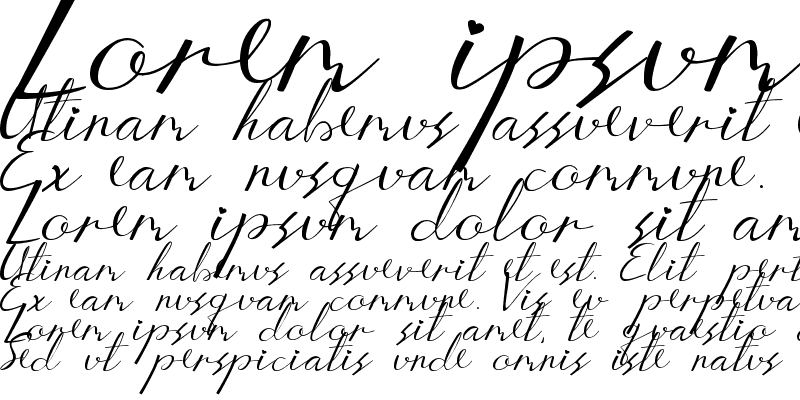 Lorem ipsum
Utinam habemus assueverit
Ex eam nusquam commune.
Lorem ipsum dolor sit am
Utinam habemus assueverit et est. Elit pert
Ex eam nusquam commune. Vis eu perpetua
Lorem ipsum dolor sit amet, te quaestio
Sed ut perspiciatis unde omnis iste natus